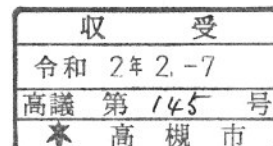 収 受
令和 2年2.-7
高議 第 145 号
★ 高槻市